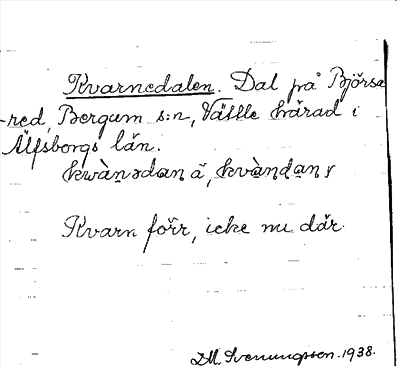 Kvarnedalen. Dal på Björsa
-red, Bergum s:n, Vättle härad i
Älfsborgs län.
Kvarn förr, icke nu där.
D.M. Svenungsson. 1938.